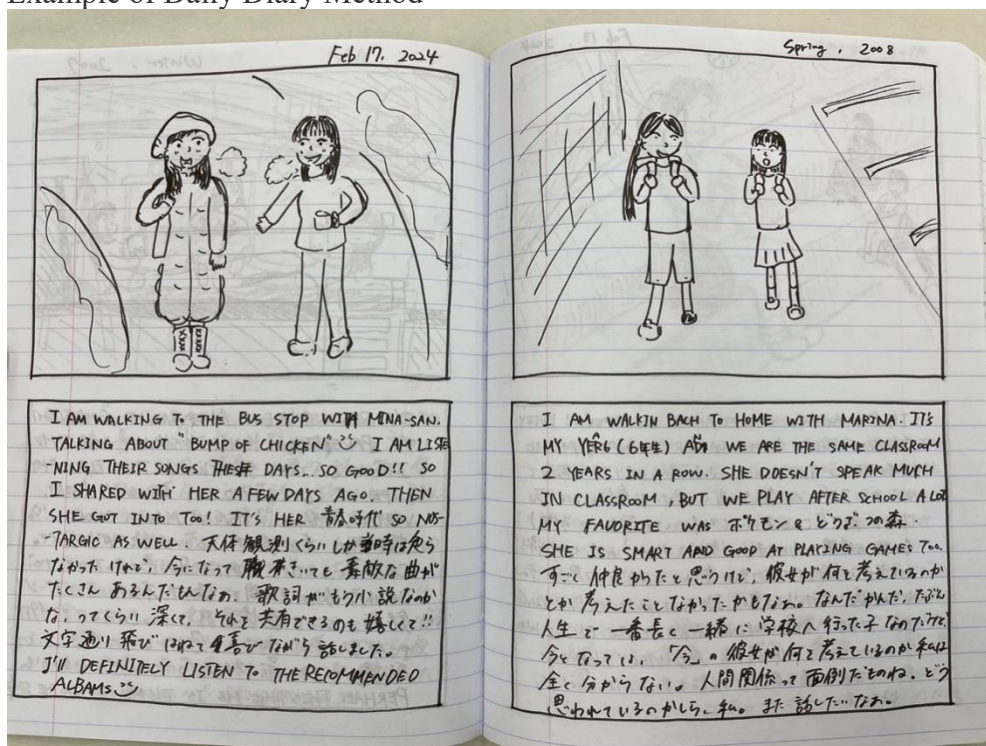 Example of Daily Diary Method
Feb 17, 2024
I AM WALKING TO THE BUS STOP WITH MINA-SAN.
TALKING ABOUT "BUMP OF CHICKEN" I AM LISTE
-NING THEIR SONGS THESE DAYS.. SO GOOD!! SO
I SHARED WITH HER A FEW DAYS AGO. THEN
SHE GOT INTO TOO! IT'S HER 青春時代 SO NOS-
-TARGIC AS WELL. 天体観測くらいしか当時は知ら
なかったけれど、今になって聴いても素敵な曲が
たくさんあるんだもんなぁ。歌詞がもう小説なのか
な、ってくらい深くて、それを共有できるのも嬉しくて!!
文字通り飛びはねて喜びながら話しました。
I'LL DEFINITELY LISTEN TO THE RECOMMENDED
ALBAMS
Spring, 2008
I AM WALKIN BACH TO HOME WITH MARINA. IT'S
MY YER6 (6年生) AND WE ARE THE SAME CLASSROOM
2 YEARS IN A ROW. SHE DOESN'T SPEAK MUCH
IN CLASSROOM, BUT WE PLAY AFTER SCHOOL A LOT
MY FAVORITE WAS ポケモン & どうぶつの森.
SHE IS SMART AND GOOD AT PLAYING GAMES TOO.
すごく仲良かったと思うけど、彼女が何を考えているのか
とか考えたことなかったかもなぁ。なんだかんだ、たぶん
人生で一番長く一緒に学校へ行った子なのだけど、
今となっては、「今」の彼女が何を考えているのか私は
全く分からない。人間関係って面倒だものね。どう
思われているのかしら、私。また話したいなぁ。